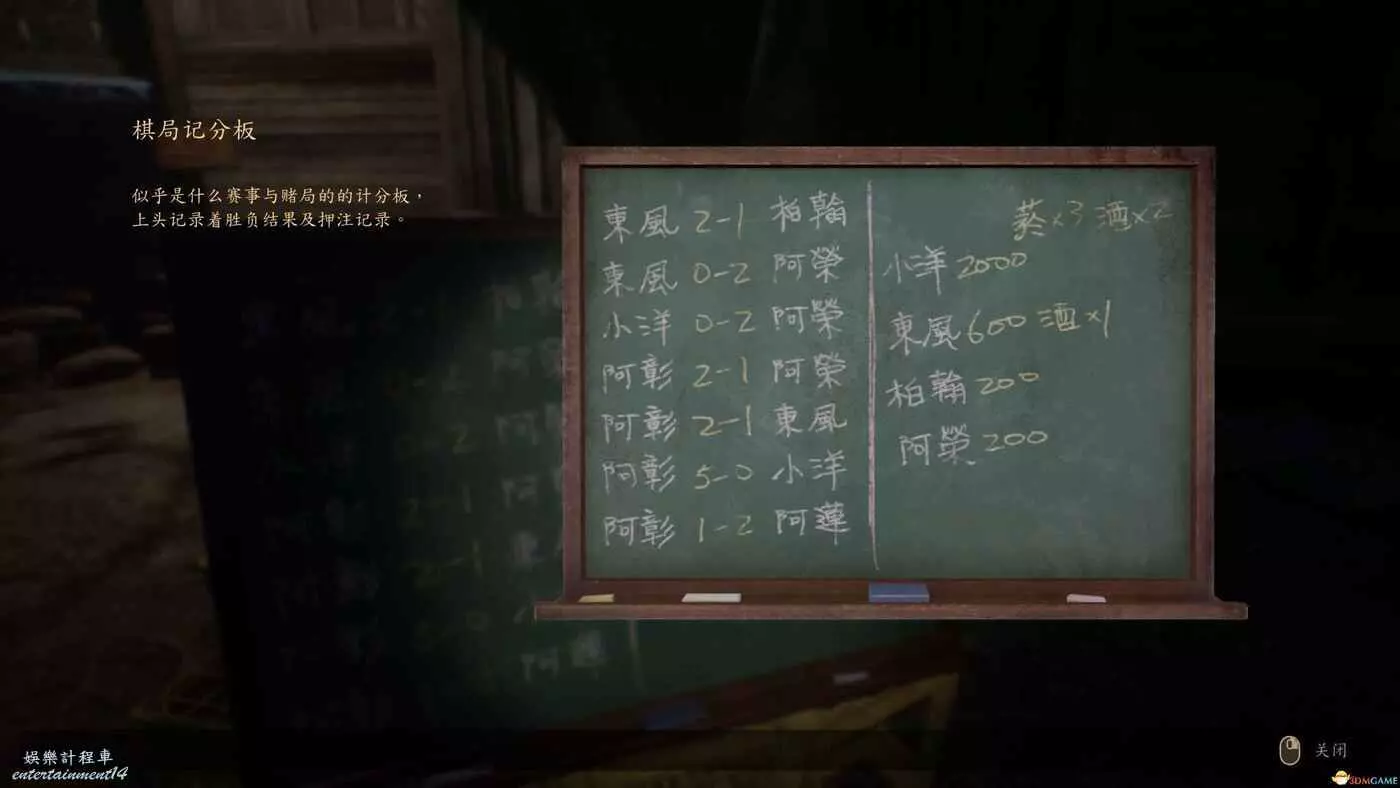 棋局记分板
似乎是什么赛事与赌局的的计分板，
上头记录着胜负结果及押注记录。
東風 2-1 柏翰
東風 0-2 阿榮
小洋 0-2 阿榮
阿彰 2-1 阿榮
阿彰 2-1 東風
阿彰 5-0 小洋
阿彰 1-2 阿蓮
菸×3 酒×2
小洋 2000
東風 600 酒×1
柏翰 200
阿榮 200
关闭
娛樂計程車
entertainment14
3DMGAME